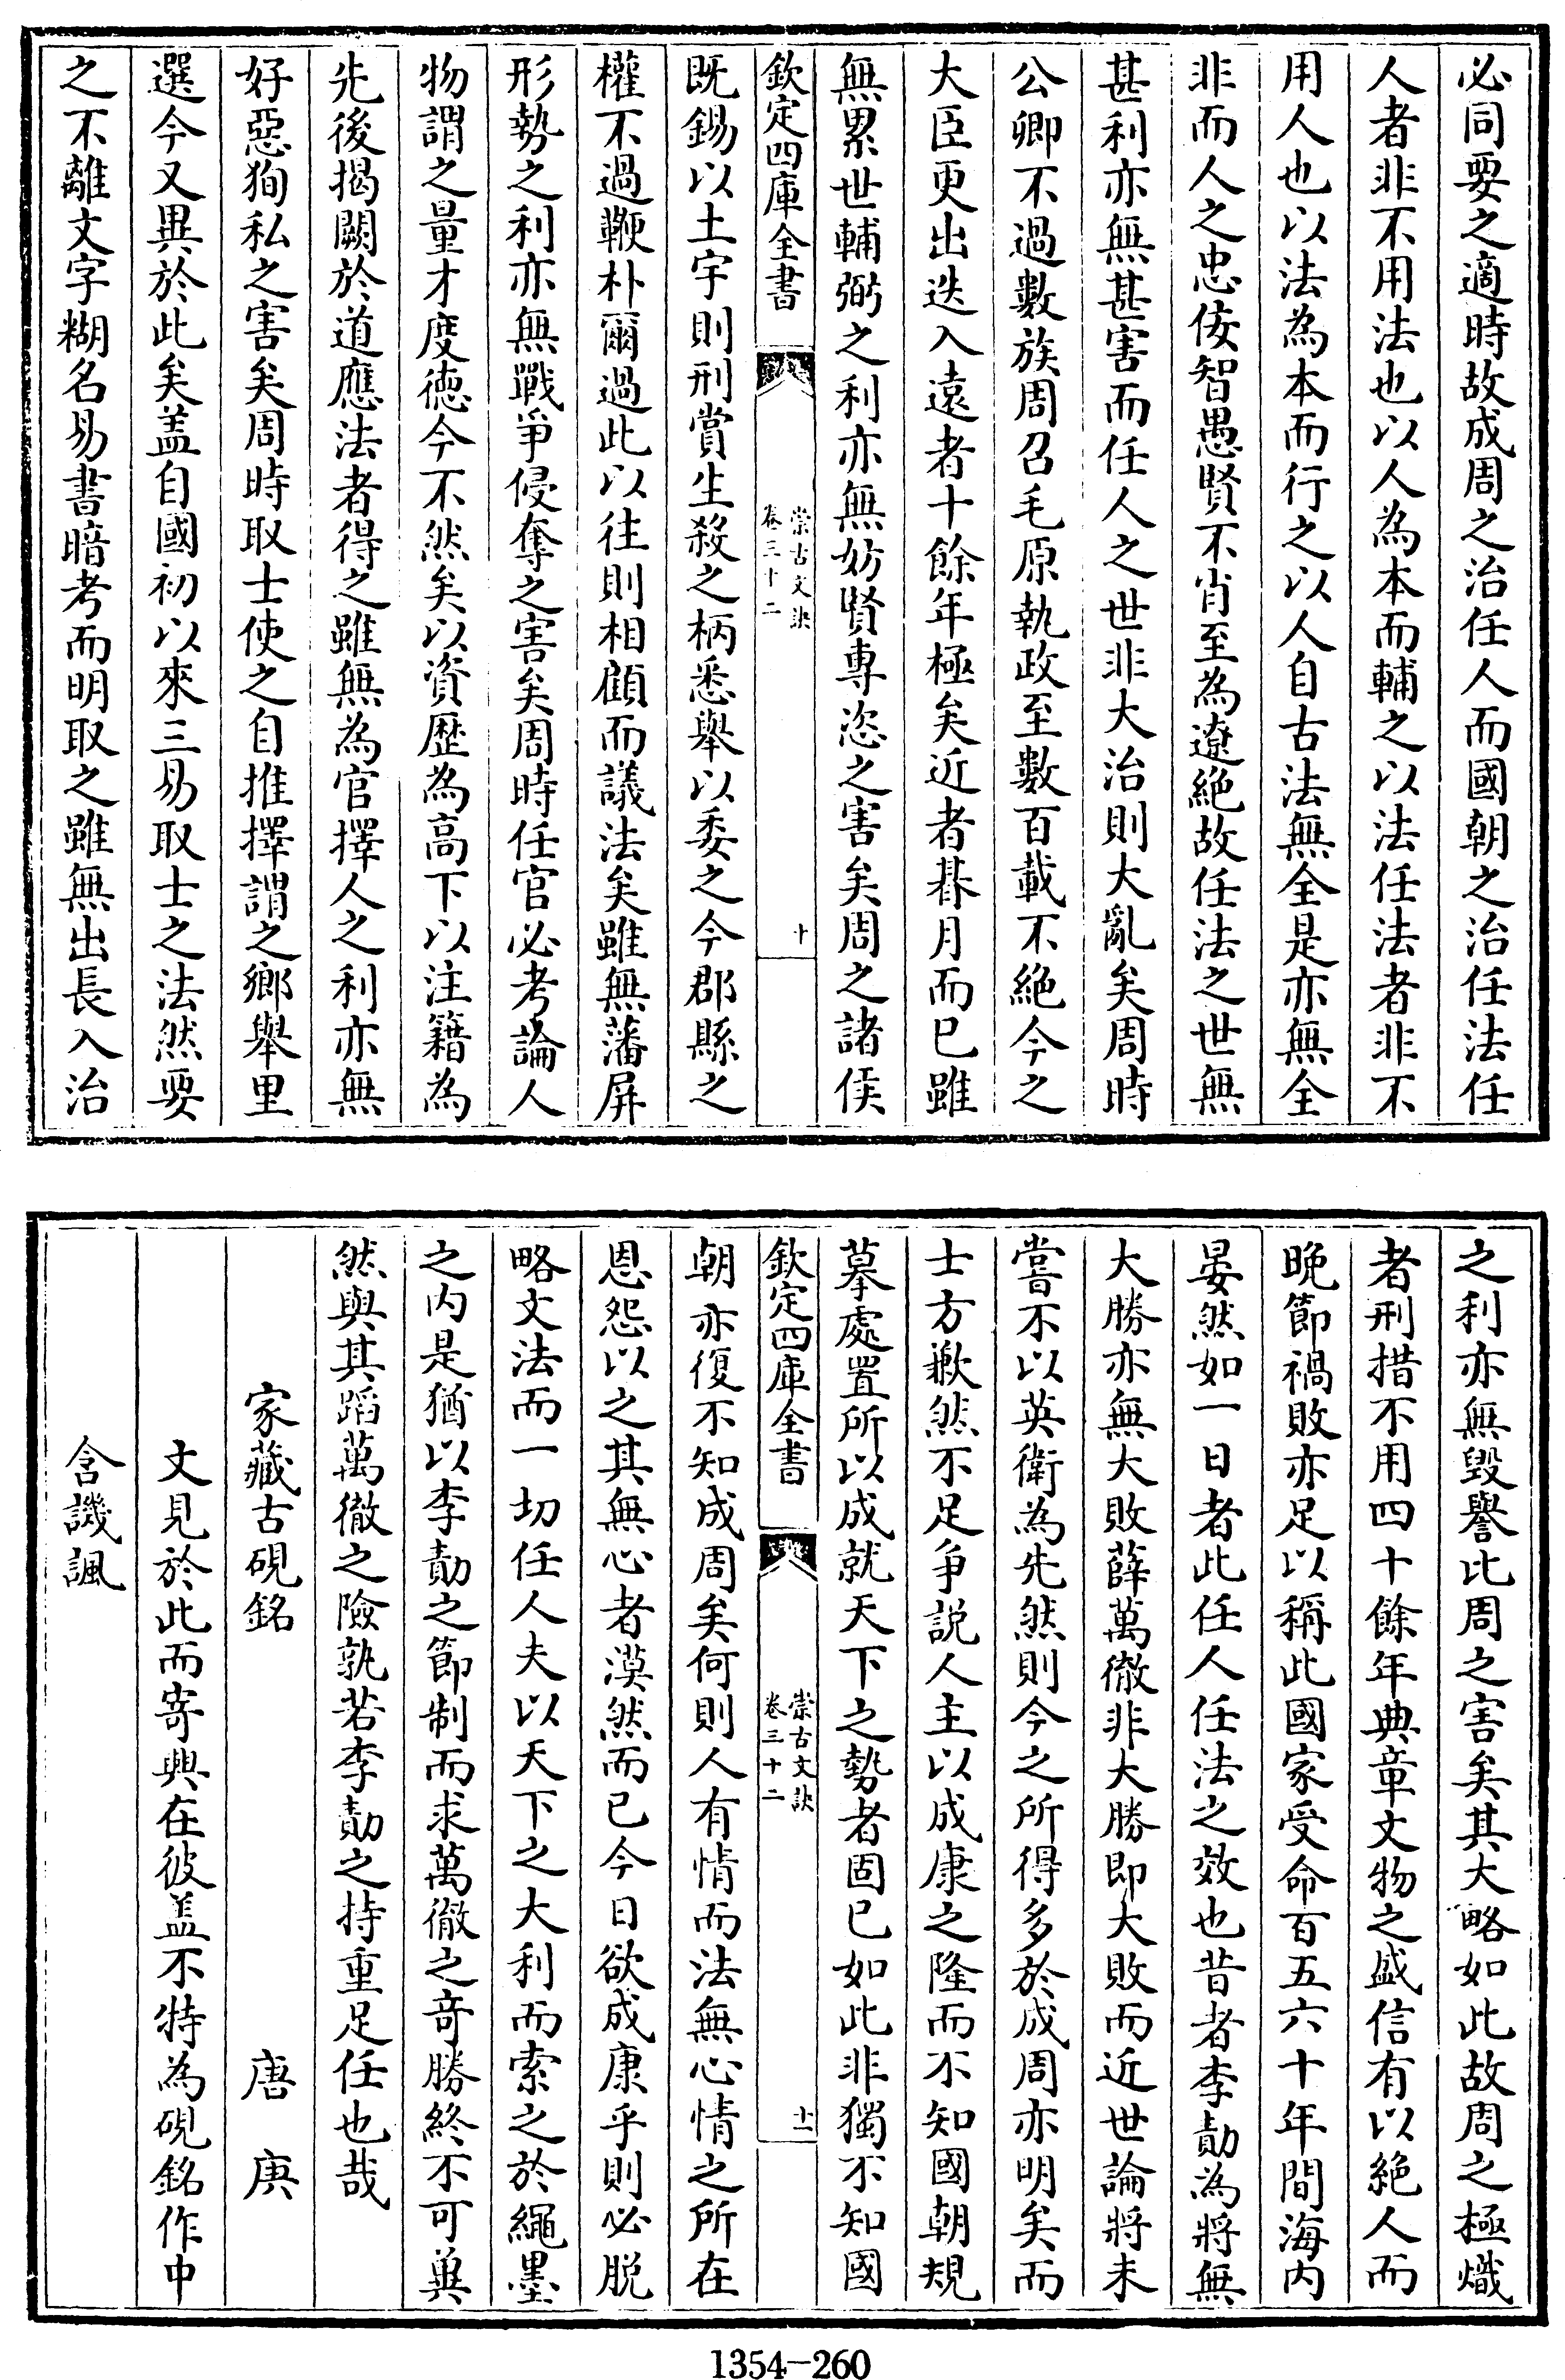 必同要之適時故成周之治任人而國朝之治任法任
人者非不用法也以人為本而輔之以法任法者非不
用人也以法為本而行之以人自古法無全是亦無全
非而人之忠佞智愚賢不肖至為遼絶故任法之世無
甚利亦無甚害而任人之世非大治則大亂矣周時
公卿不過數族周召毛原執政至數百載不絶今之
大臣更出迭入遠者十餘年極矣近者朞月而已雖
無累世輔弼之利亦無妨賢專恣之害矣周之諸侯
欽定四庫全書
崇古文訣
卷三十二
十
既錫以土宇則刑賞生殺之柄悉舉以委之今郡縣之
權不過鞭朴爾過此以往則相顧而議法矣雖無藩屏
形勢之利亦無戰爭侵奪之害矣周時任官必考論人
物謂之量才度徳今不然矣以資歴為高下以注籍為
先後揭闕於道應法者得之雖無為官擇人之利亦無
好惡狥私之害矣周時取士使之自推擇謂之鄉舉里
選今又異於此矣盖自國初以來三易取士之法然要
之不離文字糊名易書暗考而明取之雖無出長入治
之利亦無毀譽比周之害矣其大略如此故周之極熾
者刑措不用四十餘年典章文物之盛信有以絶人而
晚節禍敗亦足以稱此國家受命百五六十年間海内
晏然如一日者此任人任法之效也昔者李勣為將無
大勝亦無大敗薛萬徹非大勝即大敗而近世論將未
嘗不以英衛為先然則今之所得多於成周亦明矣而
士方歉然不足争説人主以成康之隆而不知國朝規
摹處置所以成就天下之勢者固已如此非獨不知國
欽定四庫全書
崇古文訣
卷三十二
十一
朝亦復不知成周矣何則人有情而法無心情之所在
恩怨以之其無心者漠然而已今日欲成康乎則必脱
略文法而一切任人夫以天下之大利而索之於繩墨
之内是猶以李勣之節制而求萬徹之竒勝終不可兾
然與其蹈萬徹之險孰若李勣之持重足任也哉
家藏古硯銘 唐 庚
文見於此而寄興在彼盖不特為硯銘作中
含譏諷
1354-260